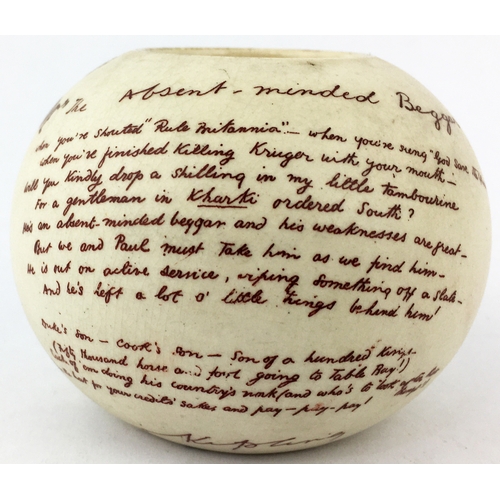 The Absent-minded Beggar
When you've shouted "Rule Britannia" — when you've sung "God Save the
When you've finished Killing Kruger with your mouth —
Will you Kindly drop a shilling in my little tambourine
For a gentleman in Kharki ordered South?
He's an absent-minded beggar and his weaknesses are great —
But we and Paul must take him as we find him —
He is out on active service, wiping something off a slate —
And he's left a lot o' little things behind him!
Duke's son — Cook's son — Son of a hundred Kings —
(Fifty thousand horse and foot going to Table Bay!)
Each of 'em doing his country's work (and who's to look after
for your credit's sakes and pay — pay — pay!
Kipling